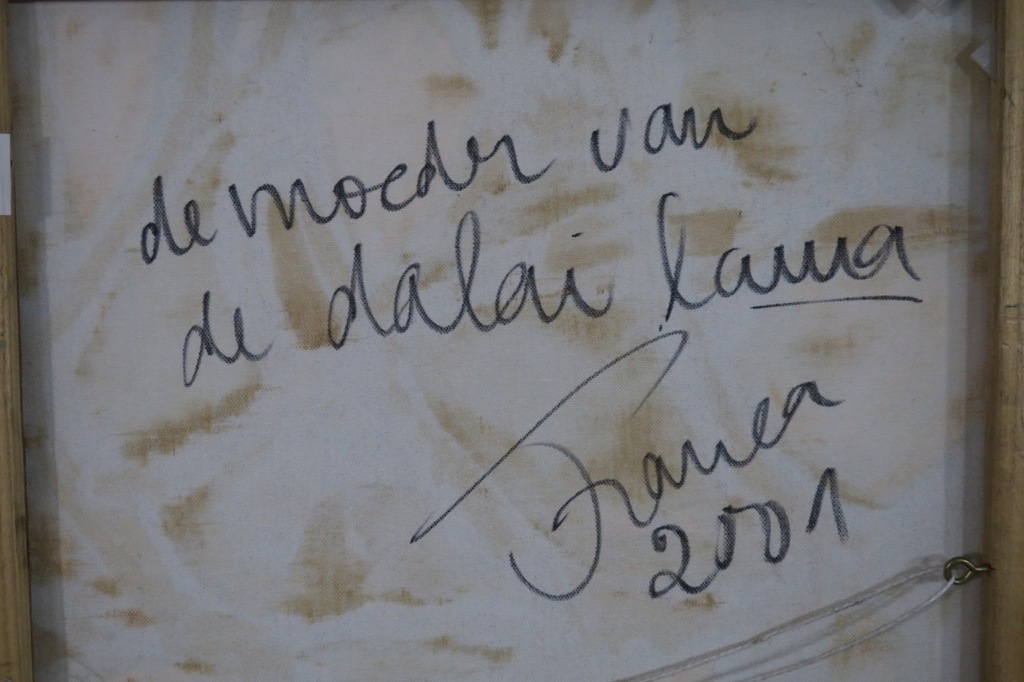 de moeder van
de dalai lama
Franca
2001